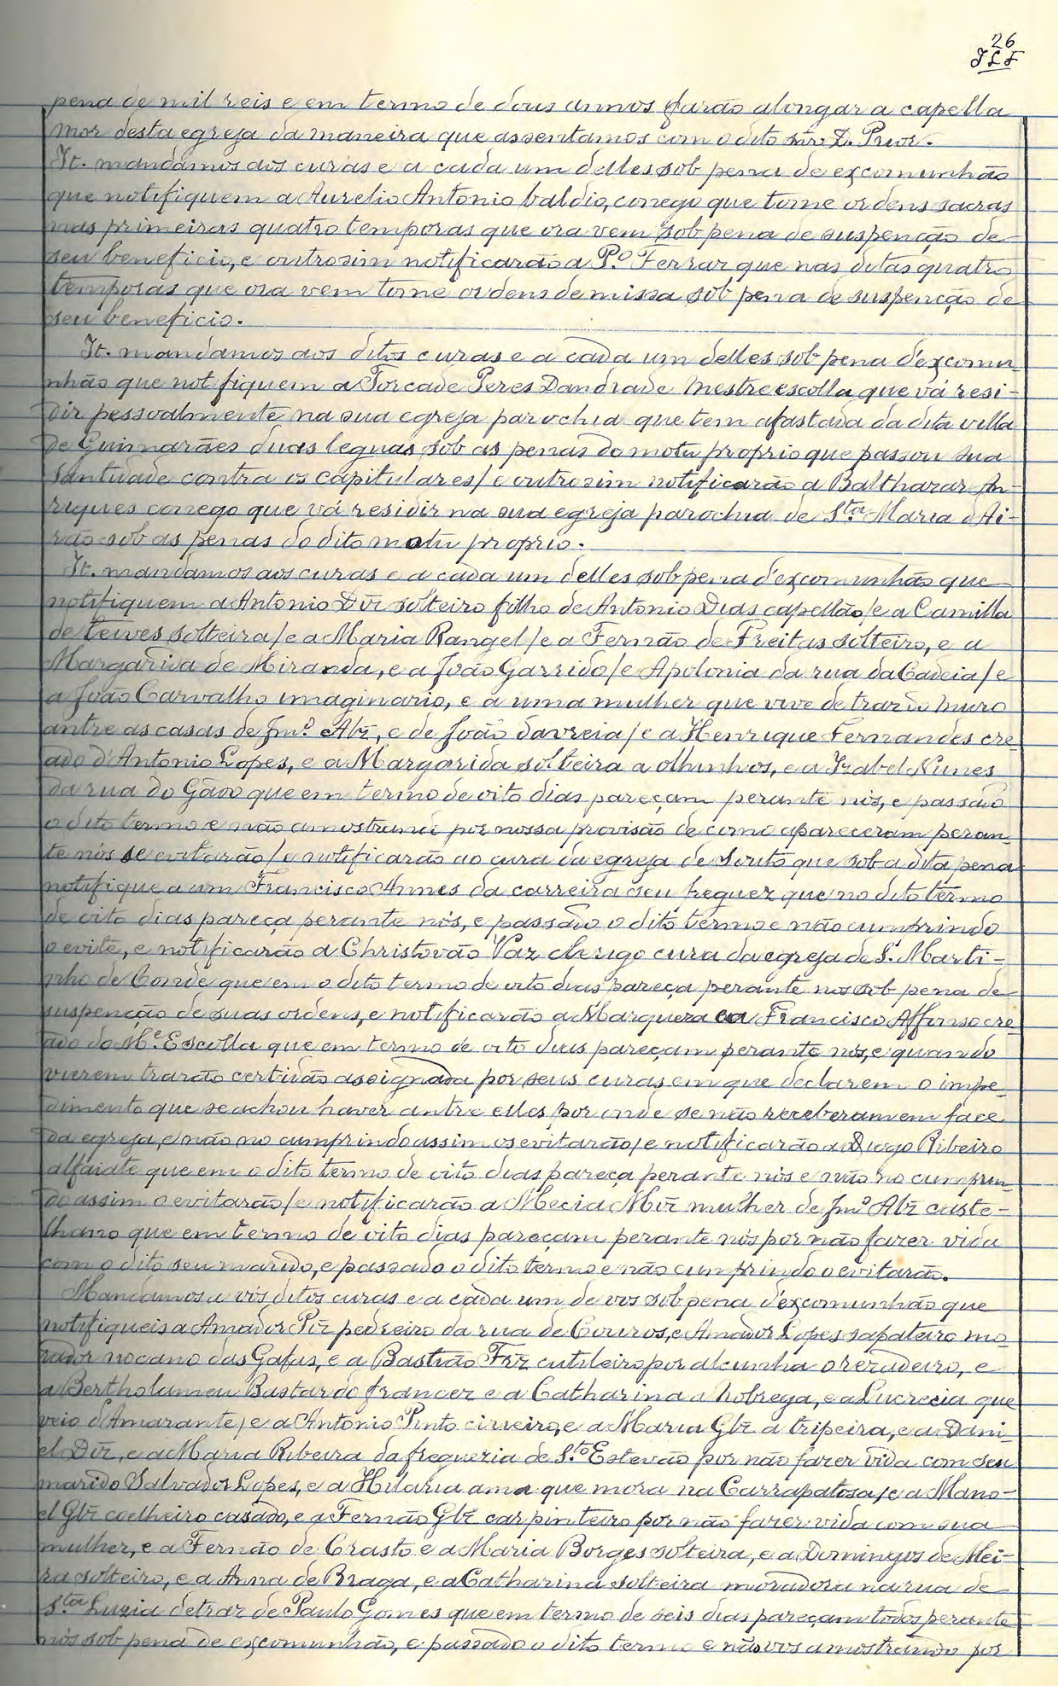 26
JLF
pena de mil reis e em termo de dous annos farão alongar a capella
mor desta egreja da maneira que assentamos com o dito snr. D. Prior.
It. mandamos aos curas e a cada um delles sob pena de excomunhão
que notifiquem a Aurelio Antonio baldio, conego que tome ordens sacras
nas primeiras quatro temporas que ora vem sob pena de suspenção de
seu beneficio, e outrosim notificarão a P.º Ferrar que nas ditas quatro
temporas que ora vem tome ordens de missa sob pena de suspenção de
seu beneficio.
It. mandamos aos ditos curas e a cada um delles sob pena d'excomu
nhão que notifiquem a Torcade Peres Dandrade mestre escolla, que vá resi-
dir pessoalmente na sua egreja parochia que tem afastada da dita villa
de Guimarães duas leguas sob as penas do motu proprio que passou sua
santidade contra os capitulares / e outrosim notificarão a Balthazar An-
riques conego que vá residir na sua egreja parochia de S.ta Maria d'Ai-
rão sob as penas do dito motu proprio.
It. mandamos aos curas e a cada um delles sob pena d'excomunhão que
notifiquem a Antonio Diz solteiro filho de Antonio Dias capellão / e a Camilla
de Teives solteira / e a Maria Rangel / e a Fernão de Freitas solteiro, e a
Margarida de Miranda, e a João Garrido / e Apolonia da rua da Cadeia / e
a João Carvalho imaginario, e a uma mulher que vive detraz do muro
antre as casas de Jm.º Alz, e de João davreia / e a Henrique Fernandes cre
ado d'Antonio Lopes, e a Margarida solteira a olhinhos, e a Izabel Nunes
da rua do Gado que em termo de oito dias pareçam perante nós, e passado
o dito termo e não amostrando por nossa provisão de como apareceram peran-
te nós se evitarão / e notificarão ao cura da egreja de Souto que sob a dita pena
notifique a um Francisco Annes da carreira seu freguez que no dito termo
de oito dias pareça perante nós, e passado o dito termo e não cumprindo
o evite, e notificarão a Christovão Vaz clerigo cura da egreja de S. Marti-
nho de Conde que em o dito termo de oito dias pareça perante nos sob pena de
suspenção de suas ordens, e notificarão a Marqueza e a Francisco Affonso cre
ado do M.e Escolla que em termo de oito dias pareçam perante nós, e quando
vierem trarão certidão assignada por seus curas em que declarem o impe-
dimento que se achou haver antre elles por onde se não receberam em face
da egreja, e não no cumprindo assim os evitarão / e notificarão a Diogo Ribeiro
alfaiate que em o dito termo de oito dias pareça perante nós e não no cumprin-
do assim o evitarão / e notificarão a Mecia Miz mulher de Jm.º Alz caste-
lhano que em termo de oito dias pareçam perante nós por não fazer vida
com o dito seu marido, e passado o dito termo e não cumprindo o evitarão.
Mandamos a vós ditos curas e a cada um de vos sob pena d'excomunhão que
notifiqueis a Amador Piz pedreiro da rua de Couros, e Amador Lopes sapateiro mo
rador no cano das Gafas, e a Bastião Frz cutileiro por alcunha o rezadeiro, e
a Bertholameu Bastardo francez e a Catharina a Nobrega, e a Lucrecia que
veio d'Amarante / e a Antonio Pinto cirieiro, e a Maria Glz a tripeira, e a Dani-
el Diz, e a Maria Ribeira da freguezia de S.to Estevão por não fazer vida com seu
marido Salvador Lopes, e a Hilaria ama que mora na Carrapatosa / e a Mano-
el Glz coelheiro casado, e a Fernão Glz carpinteiro por não fazer vida com sua
mulher, e a Fernão de Crasto e a Maria Borges solteira, e a Domingos de Mei-
ra solteiro, e a Anna de Braga, e a Catharina solteira moradora na rua de
S.ta Luzia detraz de Paulo Gomes que em termo de seis dias pareçam todos perante
nós sob pena de excomunhão, e passado o dito termo e não vos amostrando por